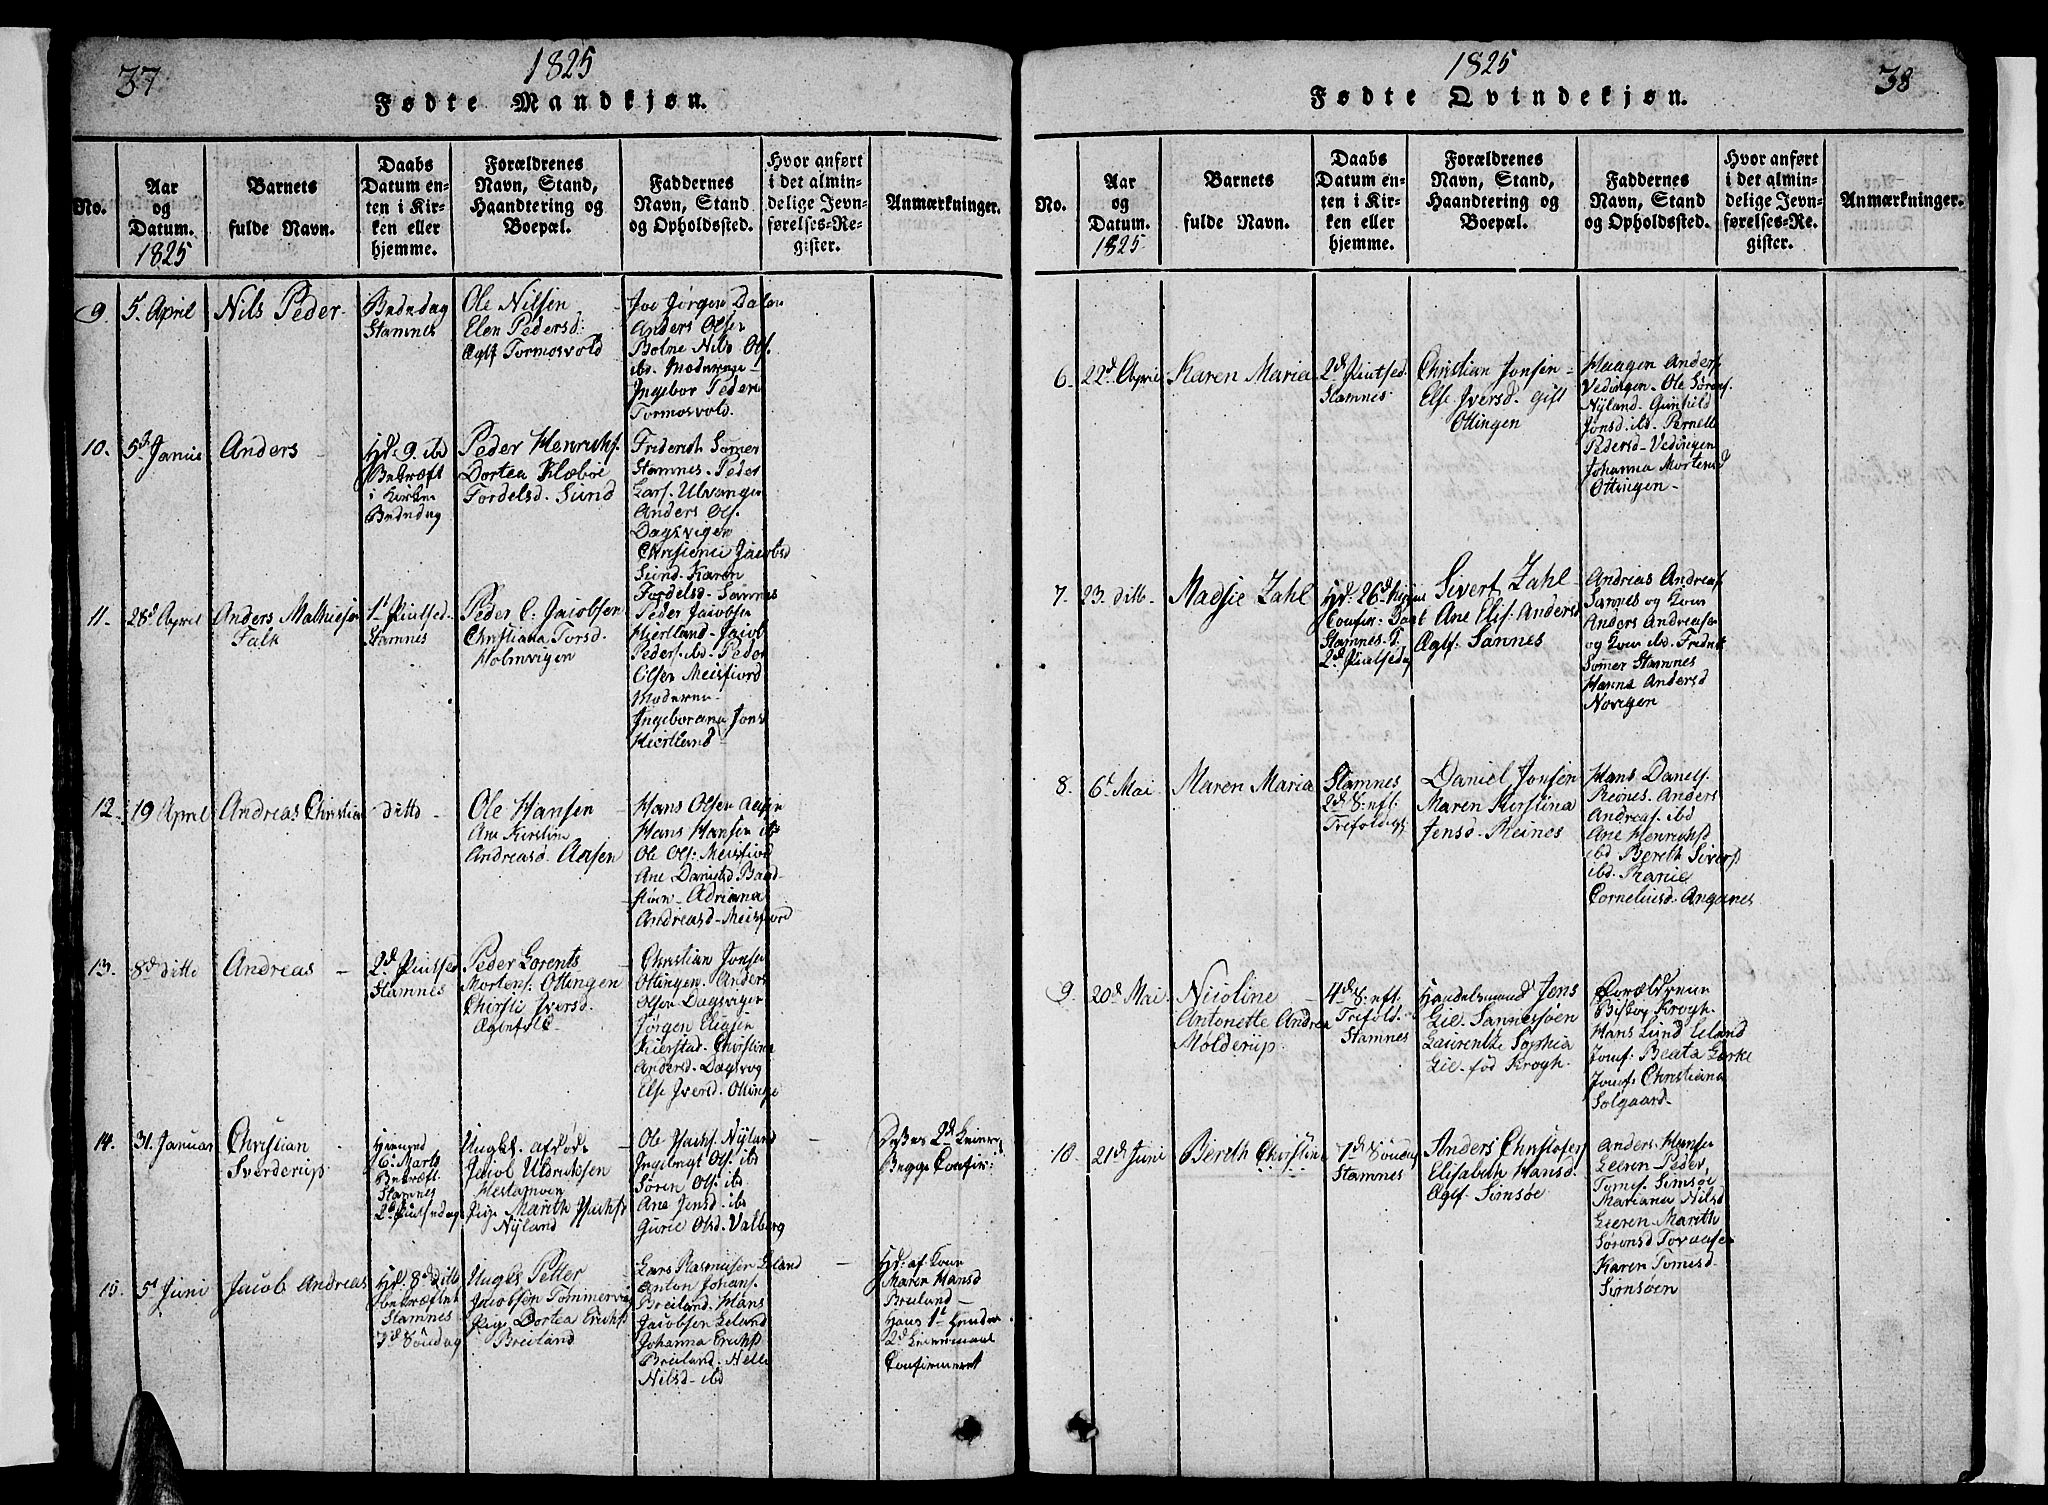 37
1825
Fødte Mandkjøn.
No.
Aar
og
Datum.
1825
Barnets
fulde Navn.
Daabs
Datum en-
ten i Kir-
ken eller
hjemme.
Forældrenes
Navn, Stand,
Haandtering og
Boepæl.
Faddernes
Navn, Stand
og Opholdssted.
Hvor anført
i det almin-
delige Jevn-
førelses-Re-
gister.
Anmærkninger.
9.
5. April
Nils Peder
Bededag
Stamnes
Ole Nilsen
Elen Pedersd:
Tormosvold
Jørgen Dalen
Anders Olsen
Nils Ols.
ibd. Moderen
Ingebor Peders
Tormosvold.
10.
5t Janue
Anders
Hd. 9. ibd
Bekræft
i Kirken
Bededag
Peder Henrichs.
Dortea Klæboe
Tordelsd. Sund
Friderich Somer
Stamnes. Peder
Lars. Ulvangen
Anders Ols.
Dagsvigen
Jacobsd
Sund. Karen
Tordelsd. Sannes
11.
28d April
Anders Mathiesen
Falk
1t Pintsed
Stamnes
Peder C. Jacobsen
Christiana Torsd.
Holmvigen
Peder Jacobsen
Hiertland. Jacob
Peders. ibd. Peder
Olsen Meisfiord
Moderen
Ingeborana Jons
Hiertland
12.
19 April
Andreas Christian
ditto
Ole Hansen
Ane Kirstina
Andreasd.
Hans Olsen
Hans Hansen ibd
Ole Ols: Meisfiord
Ane Danielsd
Adriana
Andreasd. Meisfiord
13.
8d ditto
Andreas
2d Pintsed
Stamnes
Peder Lorents
Mortens. Ottingen
Chirsti Iversd.
Christian Jonsen
Ottingen. Anders
Olsen Dagsvigen
Jørgen Eliasen
Kierstad. Christina
Andersd. Dagsvig
Else Iversd. Ottinge
14.
31. Januar
Christian
Sverderup
Hiemmed
6. Marts
Bekræft.
Stamnes
2d Pintsedag
Ungkl.
Jacob Uldrichsen
Hestamoen
Pige Marith
Nyland
Ole Nyland
Ingebrigt Ols. ibd
Søren Ols. ibd
Ane Jensd. ibd
Gurie Olsd. Valberg
2d Leierm
Begge Confir:
15.
5t Juni
Jacob Andreas
Hd. 8d ditto
bekræftet
Stamnes
7d Søndag
Ungkl Petter
Jacobsen Tømmervig
Pige Dortea Erichs
Breiland
Lars Rasmusen Leland
Anton Johans.
Breiland. Hans
Jacobsen Leland
Johanna Erichs
Breiland. Nille
Nilsd. ibd
Hd. af Kone
Maren Hansd
Breiland
Hans 1t Hendes
2d Leiermaal
Confirmeret
38
1825
Fødte Qvindekjøn.
No.
Aar
og
Datum.
1825
Barnets
fulde Navn.
Daabs
Datum en-
ten i Kir-
ken eller
hjemme.
Forældrenes
Navn, Stand,
Haandtering og
Boepæl.
Faddernes
Navn, Stand
og Opholdssted.
Hvor anført
i det almin-
delige Jevn-
førelses-Re-
gister.
Anmærkninger.
6.
22d April
Karen Maria
2d Pintsed
Stamnes
Christian Jonsen
Else Iversd. gift
Ottingen
Haagen Anders
Vedingen. Ole Sørens.
Nyland. Gunhild
Jonsd. ibd. Pernell
Pedersd. Vedingen
Johanna Mortensd
Ottingen
7.
23. ditto
Madsie Zahl
Hd. 26d
Stamnes D.
2d Pintsedag
Sivert Zahl
Ane Elis. Andersd
Sannes
Andreas Andreas
Sannes og Kone
Anders Andreasen
og Kone ibd. Fridrik
Somer Stamnes
Hanna Andersd
Novigen
8.
6t Mai
Maren Maria
Stamnes
2d S: eft.
Trefoldigh
Daniel Jonsen
Maren Kirstina
Jensd. Reines
Hans Danels.
Reines. Anders
Andreas. ibd
Ane Henrichsd
ibd Bereth Sivers
ibd. Ranie
Corneliusd. Angernes
9.
20d Mai
Nicoline
Antonette Andrea
Molderup
4d S: eft.
Trefold.
Stamnes
Handelsmand Jens
Zie. Sannessøen
Laurentze Sophia
Zie. fød Krogh.
Forældrene
Biskop Krogh.
Hans Lund Leland
Jomf: Beata Gerke
Jomf: Christiana
Solgaard
10.
21d Juni
Bereth Christina
7d Søndag
Stamnes
Anders Christofers
Elisabeth Hansd.
Simsøe
Anders Hansen
Leeren Peder
Tomes. Simsøe
Mariana Nilsd
Leeren. Marith
Sørensd Toraasen
Karen Tomesd.
Simsøen